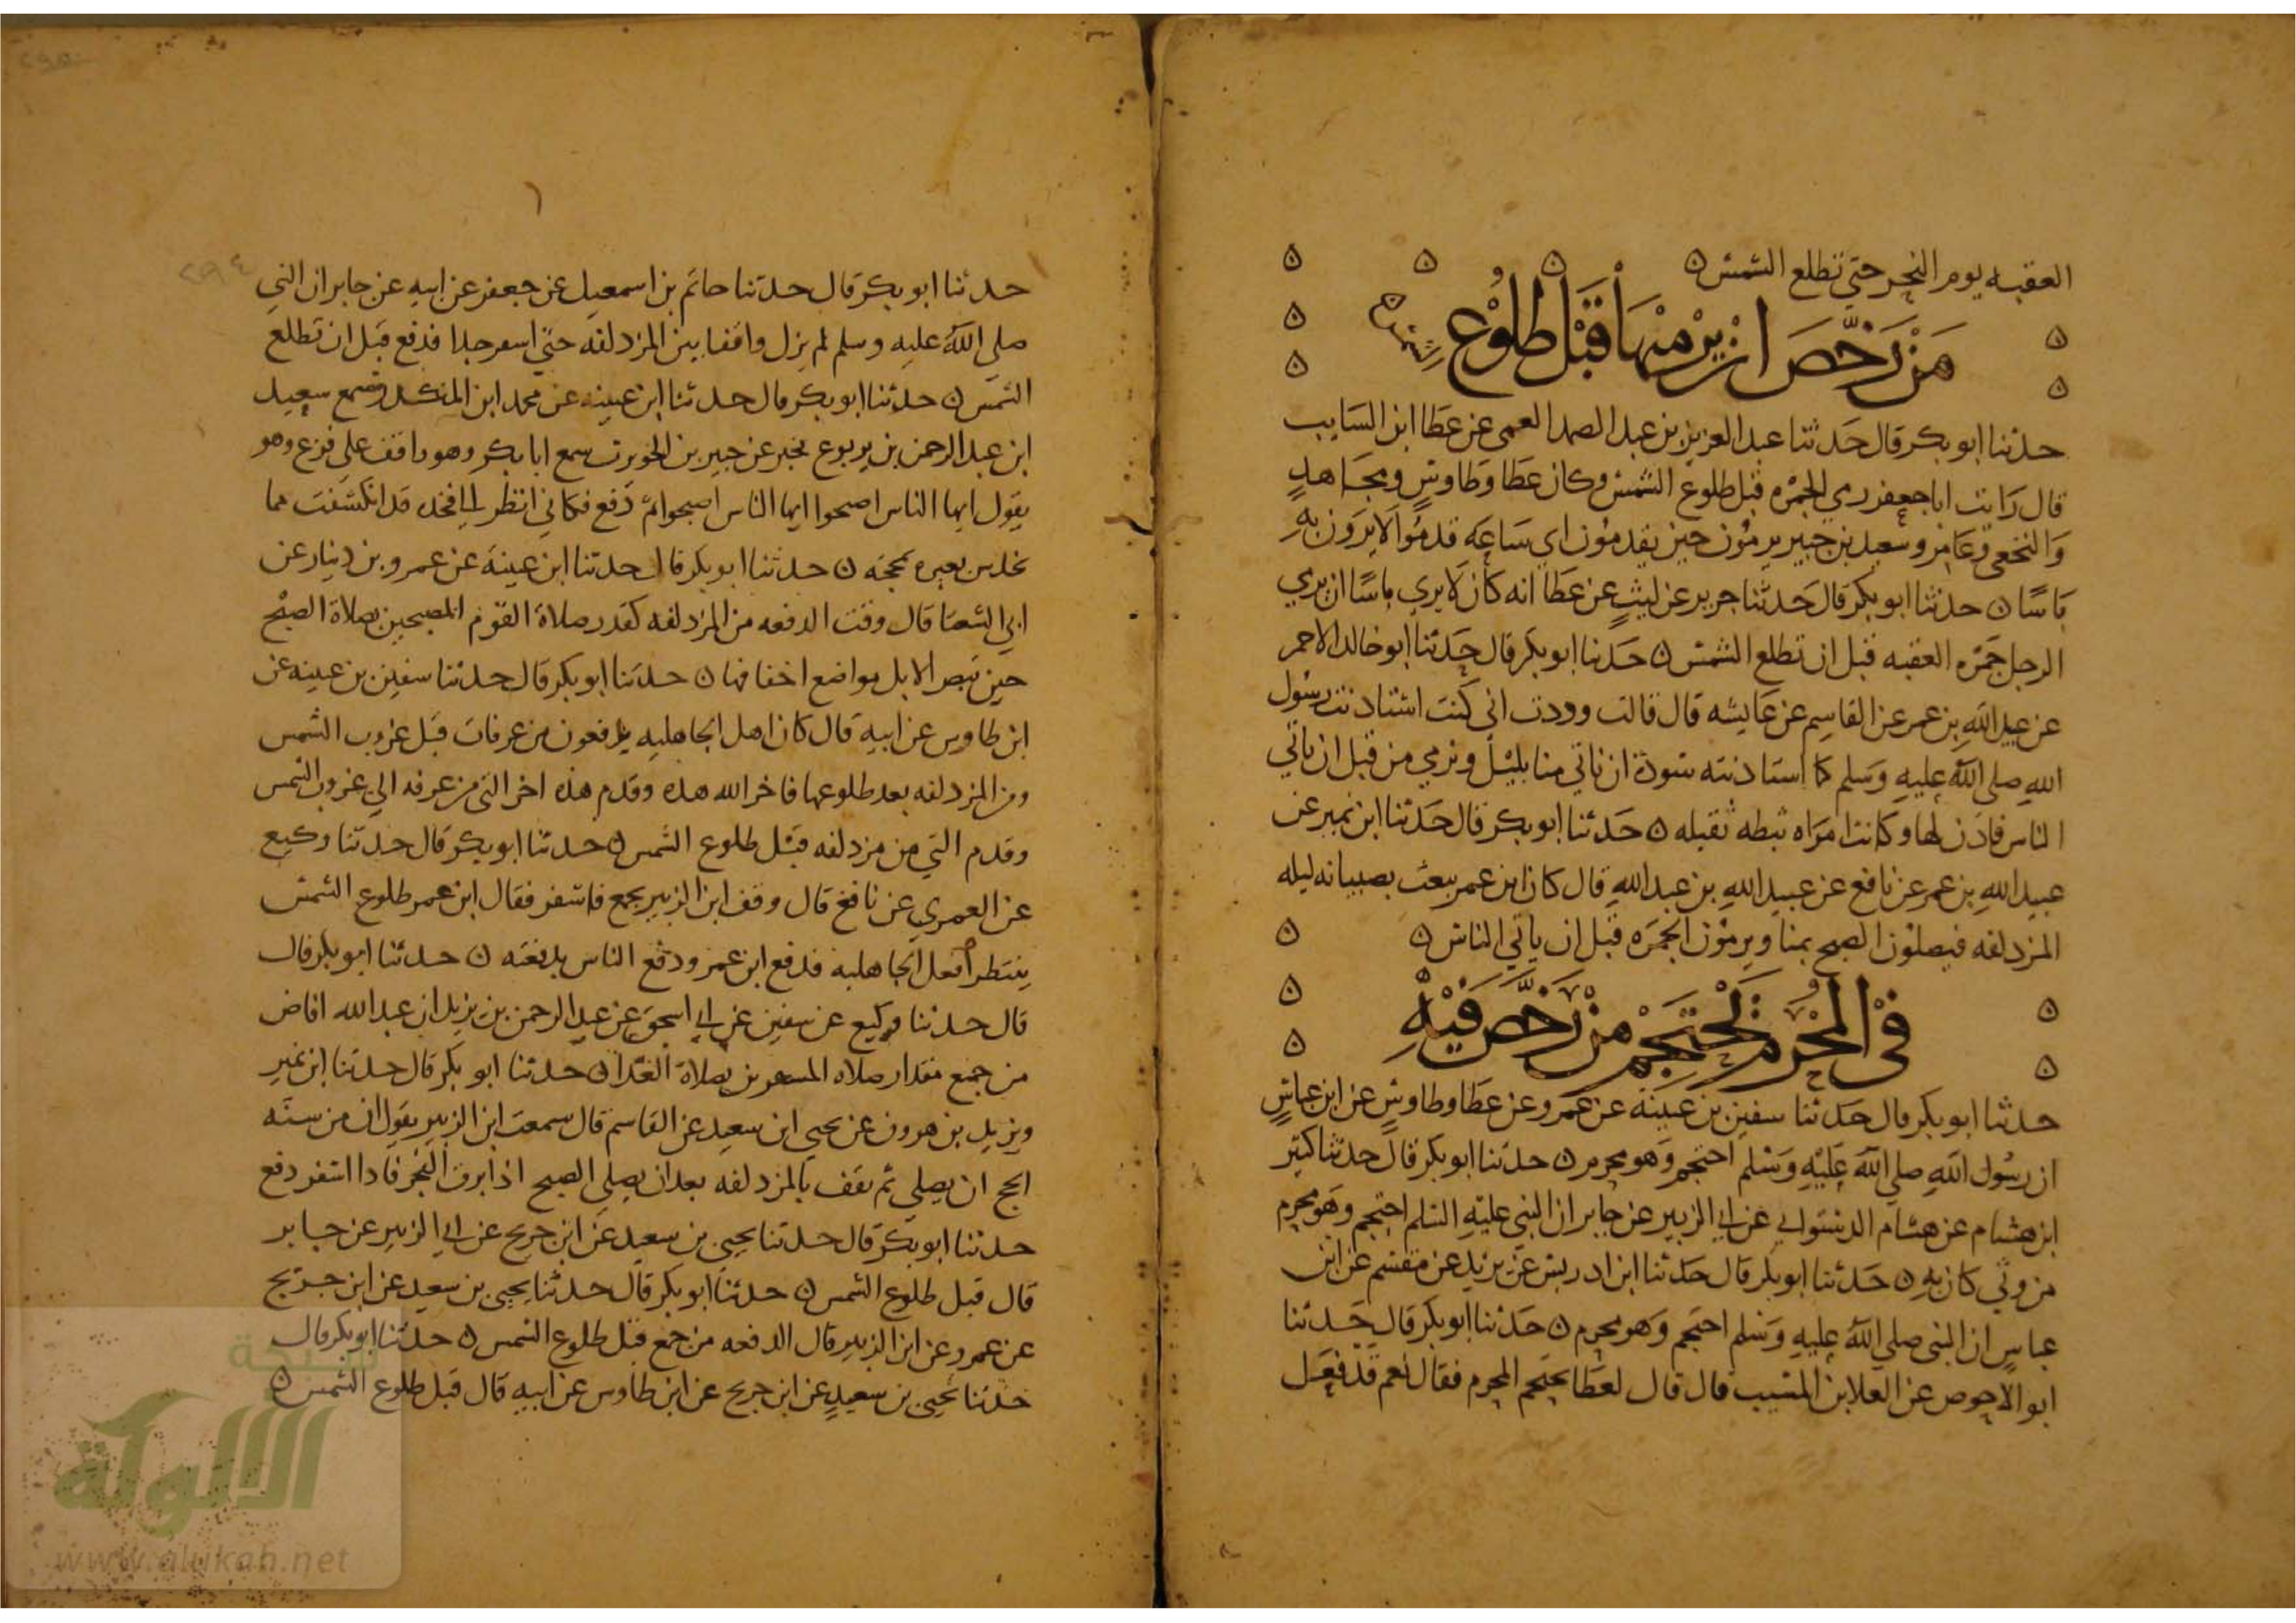 العقبه يوم النحر حتي تطلع الشمس ن
من رخص ان يرميها قبل طلوع الشمس
حدثنا ابو بكر قال حدثنا عبد العزيز بن عبد الصمد العمي عن عطا ابن السايب
قال رايت ابا جعفر رمي الجمره قبل طلوع الشمس وكان عطا وطاوس ومجاهد
والنخعي وعامر وسعيد بن جبير يرمون حين يقدمون اي ساعه قدموا لا يرون به
باسا ن حدثنا ابو بكر قال حدثنا جرير عن ليث عن عطا انه كان لا يري باسا ان يرمي
الرجل جمره العقبه قبل ان تطلع الشمس ن حدثنا ابو بكر قال حدثنا ابو خالد الاحمر
عن عبيد الله بن عمر عن القاسم عن عايشه قال قالت وددت اني كنت استاذنت رسول
الله صلي الله عليه وسلم كما استاذنته سودة ان تاتي منا بليل وترمي من قبل ان ياتي
الناس فاذن لها وكانت امراه ثبطه ثقيله ن حدثنا ابو بكر قال حدثنا ابن نمير عن
عبيد الله بن عمر عن نافع عن عبيد الله بن عبد الله قال كان ابن عمر يبعث بصبيانه ليله
المزدلفه فيصلون الصبح بمنا ويرمون الجمره قبل ان ياتي الناس ن
في المحرم يحتجم من رخص فيه
حدثنا ابو بكر قال حدثنا سفين بن عيينه عن عمرو عن عطا وطاوس عن ابن عباس
ان رسول الله صلي الله عليه وسلم احتجم وهو محرم ن حدثنا ابو بكر قال حدثنا كثير
ابن هشام عن هشام الدستوابي عن ابي الزبير عن جابر ان النبي عليه السلم احتجم وهو محرم
من وثي كان به ن حدثنا ابو بكر قال حدثنا ابن ادريس عن يزيد عن مقسم عن ابن
عباس ان النبي صلي الله عليه وسلم احتجم وهو محرم ن حدثنا ابو بكر قال حدثنا
ابو الاحوص عن العلا بن المسيب قال قال لعطا يحتجم المحرم فقال نعم قد فعل
٢٩٥
٢٩٤
حدثنا ابو بكر قال حدثنا حاتم بن اسمعيل عن جعفر عن ابيه عن جابر ان النبي
صلي الله عليه وسلم لم يزل واقفا بين المزدلفه حتي اسفر جدا فدفع قبل ان تطلع
الشمس ن حدثنا ابو بكر قال حدثنا ابن عيينه عن محمد ابن المنكدر سمع سعيد
ابن عبد الرحمن بن يربوع يخبر عن جبير بن الحويرث سمع ابا بكر وهو واقف علي قزح وهو
يقول ايها الناس اصبحوا ايها الناس اصبحوا ثم دفع فكاني انظر الي فخذه قد انكشفت مما
يخدش بعيره بمحجنه ن حدثنا ابو بكر قال حدثنا ابن عيينة عن عمرو بن دينار عن
ابي الشعثا قال وقت الدفعه من المزدلفه كقدر صلاة القوم المصبحين بصلاة الصبح
حين تبصر الابل مواضع اخفافها ن حدثنا ابو بكر قال حدثنا سفين بن عيينه عن
ابن طاوس عن ابيه قال كان اهل الجاهليه يدفعون من عرفات قبل غروب الشمس
ومن المزدلفه بعد طلوعها فاخر الله هذه وقدم هذه اخر التي من عرفه الي غروب الشمس
وقدم التي من مزدلفه قبل طلوع الشمس ن حدثنا ابو بكر قال حدثنا وكيع
عن العمري عن نافع قال وقف ابن الزبير بجمع فاسفر فقال ابن عمر طلوع الشمس
ينتظر افعل الجاهلية فدفع ابن عمر ودفع الناس بدفعته ن حدثنا ابو بكر قال
قال حدثنا وكيع عن سفين عن ابي اسحق عن عبد الرحمن بن يزيد ان عبد الله افاض
من جمع مقدار صلاه المسفرين بصلاة الغداة ن حدثنا ابو بكر قال حدثنا ابن نمير
ويزيد بن هرون عن يحيي ابن سعيد عن القاسم قال سمعت ابن الزبير يقول ان من سنه
الحج ان يصلي ثم يقف بالمزدلفه بعد ان يصلي الصبح اذا برق الفجر فاذا اسفر دفع
حدثنا ابو بكر قال حدثنا يحيي بن سعيد عن ابن جريج عن ابي الزبير عن جابر
قال قبل طلوع الشمس ن حدثنا ابو بكر قال حدثنا يحيي بن سعيد عن ابن جريج
عن عمرو عن ابن الزبير قال الدفعه من جمع قبل طلوع الشمس ن حدثنا ابو بكر قال
حدثنا يحيي بن سعيد عن ابن جريج عن ابن طاوس عن ابيه قال قبل طلوع الشمس ن
شبكة
الألوكة
www.alukah.net